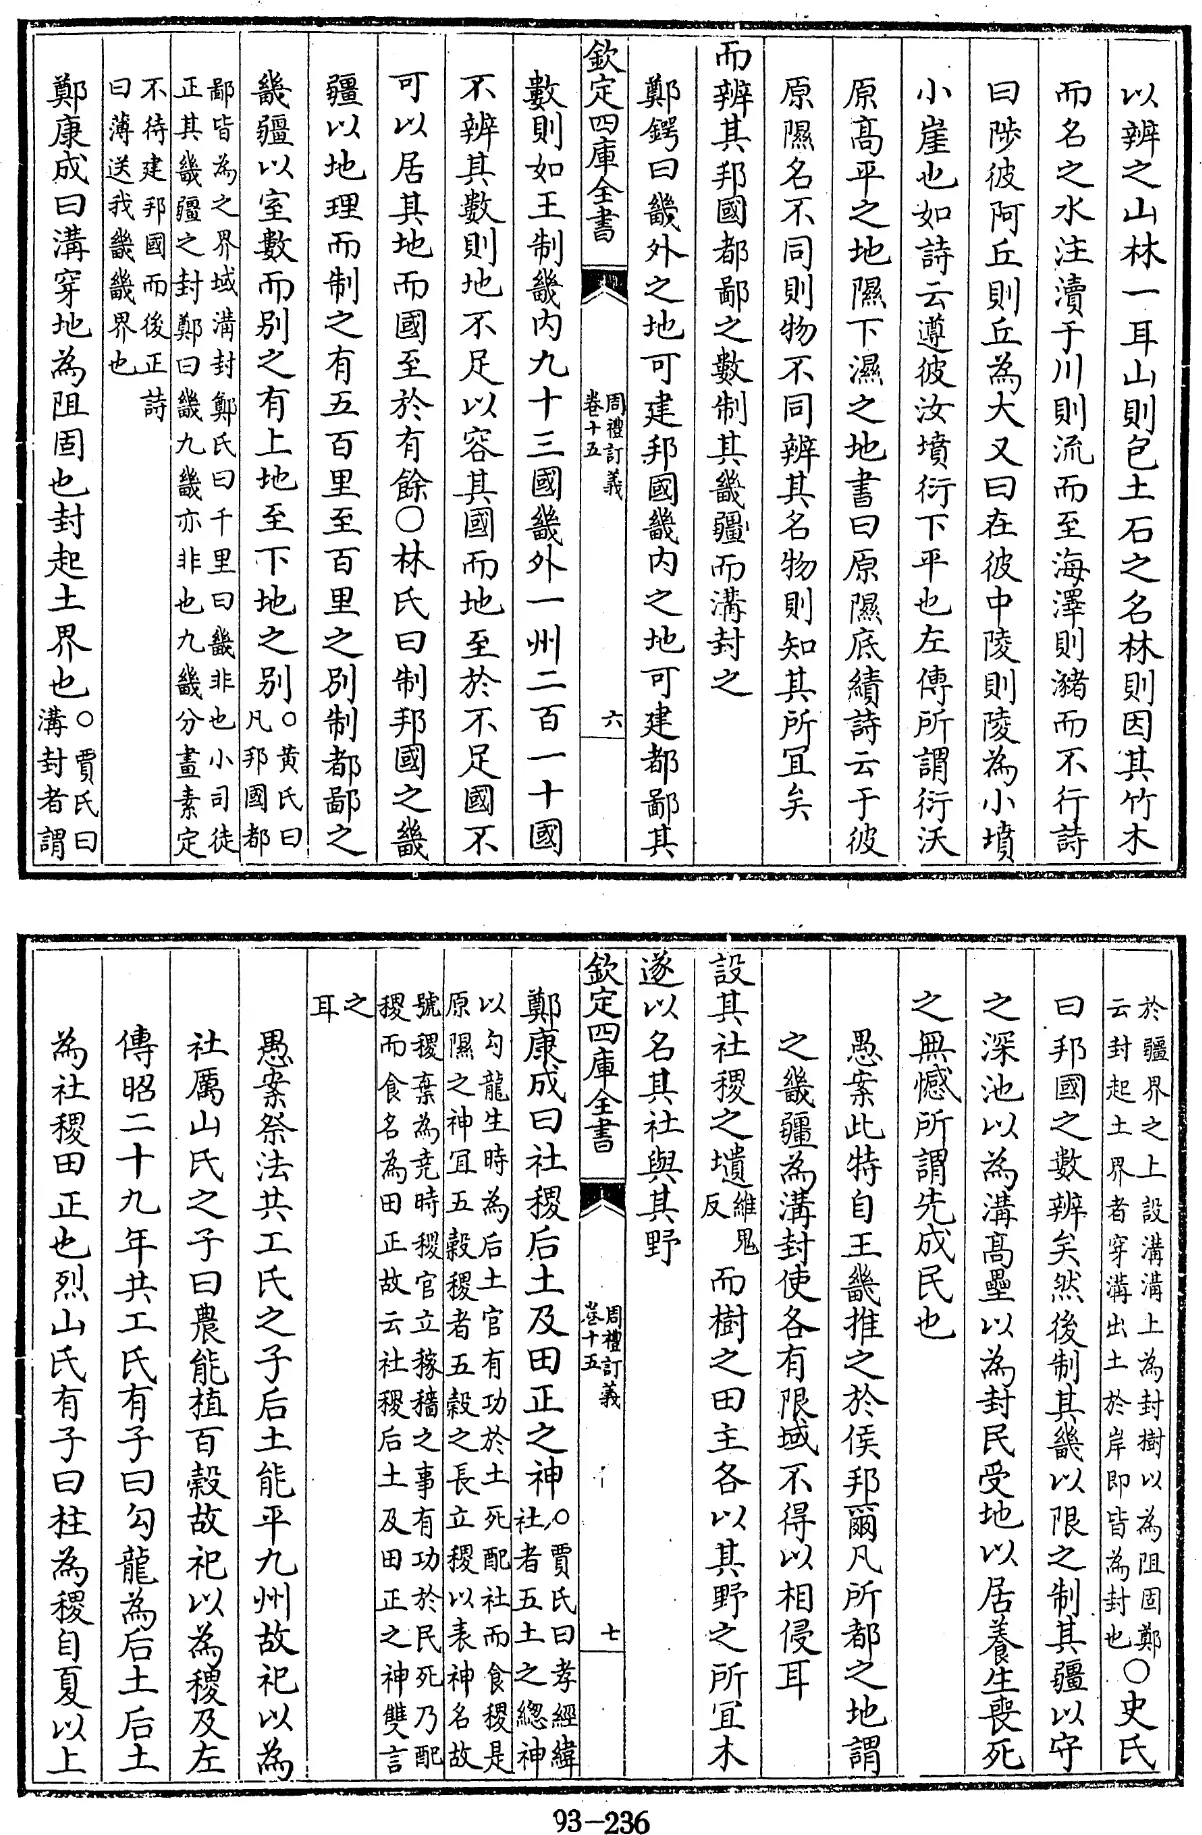 以辨之山林一耳山則包土石之名林則因其竹木
而名之水注瀆于川則流而至海澤則豬而不行詩
曰陟彼阿丘則丘為大又曰在彼中陵則陵為小墳
小崖也如詩云遵彼汝墳衍下平也左傳所謂衍沃
原高平之地隰下濕之地書曰原隰底績詩云于彼
原隰名不同則物不同辨其名物則知其所宜矣
而辨其邦國都鄙之數制其畿疆而溝封之
鄭鍔曰畿外之地可建邦國畿内之地可建都鄙其
欽定四庫全書
周禮訂義
卷十五
六
數則如王制畿内九十三國畿外一州二百一十國
不辨其數則地不足以容其國而地至於不足國不
可以居其地而國至於有餘○林氏曰制邦國之畿
疆以地理而制之有五百里至百里之別制都鄙之
畿疆以室數而別之有上地至下地之別○黄氏曰
凡邦國都
鄙皆為之界域溝封鄭氏曰千里曰畿非也小司徒
正其畿疆之封鄭曰畿九畿亦非也九畿分畫素定
不待建邦國而後正詩
曰薄送我畿畿界也
鄭康成曰溝穿地為阻固也封起土界也○賈氏曰
溝封者謂
於疆界之上設溝溝上為封樹以為阻固鄭
云封起土界者穿溝出土於岸即皆為封也○史氏
曰邦國之數辨矣然後制其畿以限之制其疆以守
之深池以為溝高壘以為封民受地以居養生喪死
之無憾所謂先成民也
愚案此特自王畿推之於侯邦爾凡所都之地謂
之畿疆為溝封使各有限域不得以相侵耳
設其社稷之壝維鬼
反而樹之田主各以其野之所宜木
遂以名其社與其野
欽定四庫全書
周禮訂義
卷十五
七
鄭康成曰社稷后土及田正之神○賈氏曰孝經緯
社者五土之總神
以勾龍生時為后土官有功於土死配社而食稷是
原隰之神宜五穀稷者五穀之長立稷以表神名故
號稷棄為堯時稷官立稼穡之事有功於民死乃配
稷而食名為田正故云社稷后土及田正之神雙言
之
耳
愚案祭法共工氏之子后土能平九州故祀以為
社厲山氏之子曰農能植百穀故祀以為稷及左
傳昭二十九年共工氏有子曰勾龍為后土后土
為社稷田正也烈山氏有子曰柱為稷自夏以上
93-236